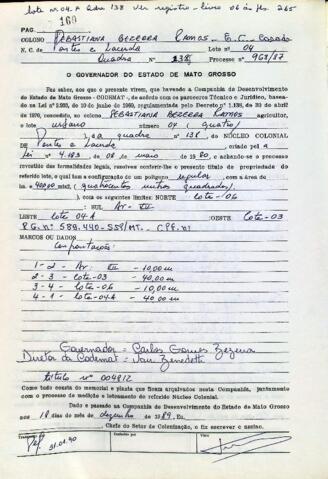 Lote nº 04.A Qdra 138 Ver registro - livro 06 às fls. 265
160
PAG.
SEBASTIANA BEZERRA RAMOS - E.C. Casado
N. C. de Pontes e Lacerda Lote nº 04
Quadra nº 138 Processo nº 968/87
O GOVERNADOR DO ESTADO DE MATO GROSSO
Faz saber, aos que o presente virem, que havendo a Companhia de Desenvolvimento
do Estado de Mato Grosso - CODEMAT, de acordo com os pareceres Técnico e Jurídico, baseados
na Lei nº 2.933, de 10 de junho de 1969, regulamentada pelo Decreto nº 1.138, de 30 de abril
de 1970, concedido, ao colono SEBASTIANA BEZERRA RAMOS agricultor,
o lote urbano número 04 (quatro)
na quadra nº 138, do NÚCLEO COLONIAL
de Pontes e Lacerda, criado pela
Lei nº 4.123, de 08 de maio de 1980, e achando-se o processo
revestido das formalidades legais, resolve conferir-lhe o presente título de propriedade do
referido lote, o qual tem a configuração de um polígono regular, com a área de
400,00 mts2 (quatrocentos metros quadrados),
com os seguintes limites: NORTE Lote-06
SUL Av- VII
LESTE Lote 04-A OESTE Lote-03
R.G. nº 588.440-SSP/MT. - CPF. nº
MARCOS OU DADOS
Confrontações:
1 - 2 - Av. VII - 10,00 m
2 - 3 - Lote-03 - 40,00 m
3 - 4 - Lote-06 - 10,00 m
4 - 1 - Lote-04-A - 40,00 m
Governador = Carlos Gomes Bezerra
Diretor da Codemat =
Título nº 004812
Como tudo consta do memorial e planta que ficam arquivados nesta Companhia, juntamente
com o processo de medição e loteamento do referido Núcleo Colonial.
Dado e passado na Companhia de Desenvolvimento do Estado de Mato Grosso
aos 18 dias do mês de dezembro de 1989. Eu,
Chefe do Setor de Colonização, o fiz escrever e assino.
Transcrito por Conferido por Visto
31.01.90